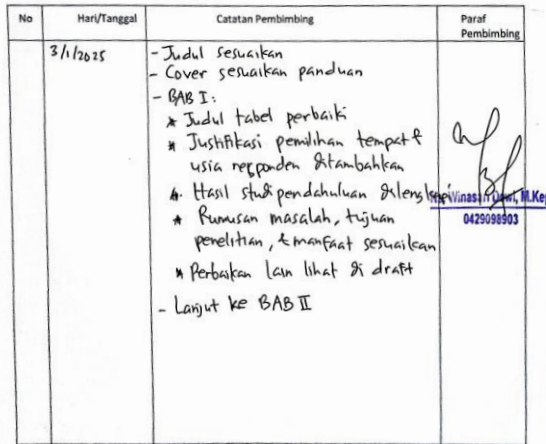 No Hari/Tanggal Catatan Pembimbing Paraf
Pembimbing
3/1/2025 - Judul sesuaikan
- Cover sesuaikan panduan
- BAB I:
* Judul tabel perbaiki
* Justifikasi pemilihan tempat &
usia responden ditambahkan
* Hasil studi pendahuluan dilengkapi
Winasari Dewi, M.Kep
* Rumusan masalah, tujuan
0429098903
penelitian, & manfaat sesuaikan
* Perbaikan lain lihat di draft
- Lanjut ke BAB II